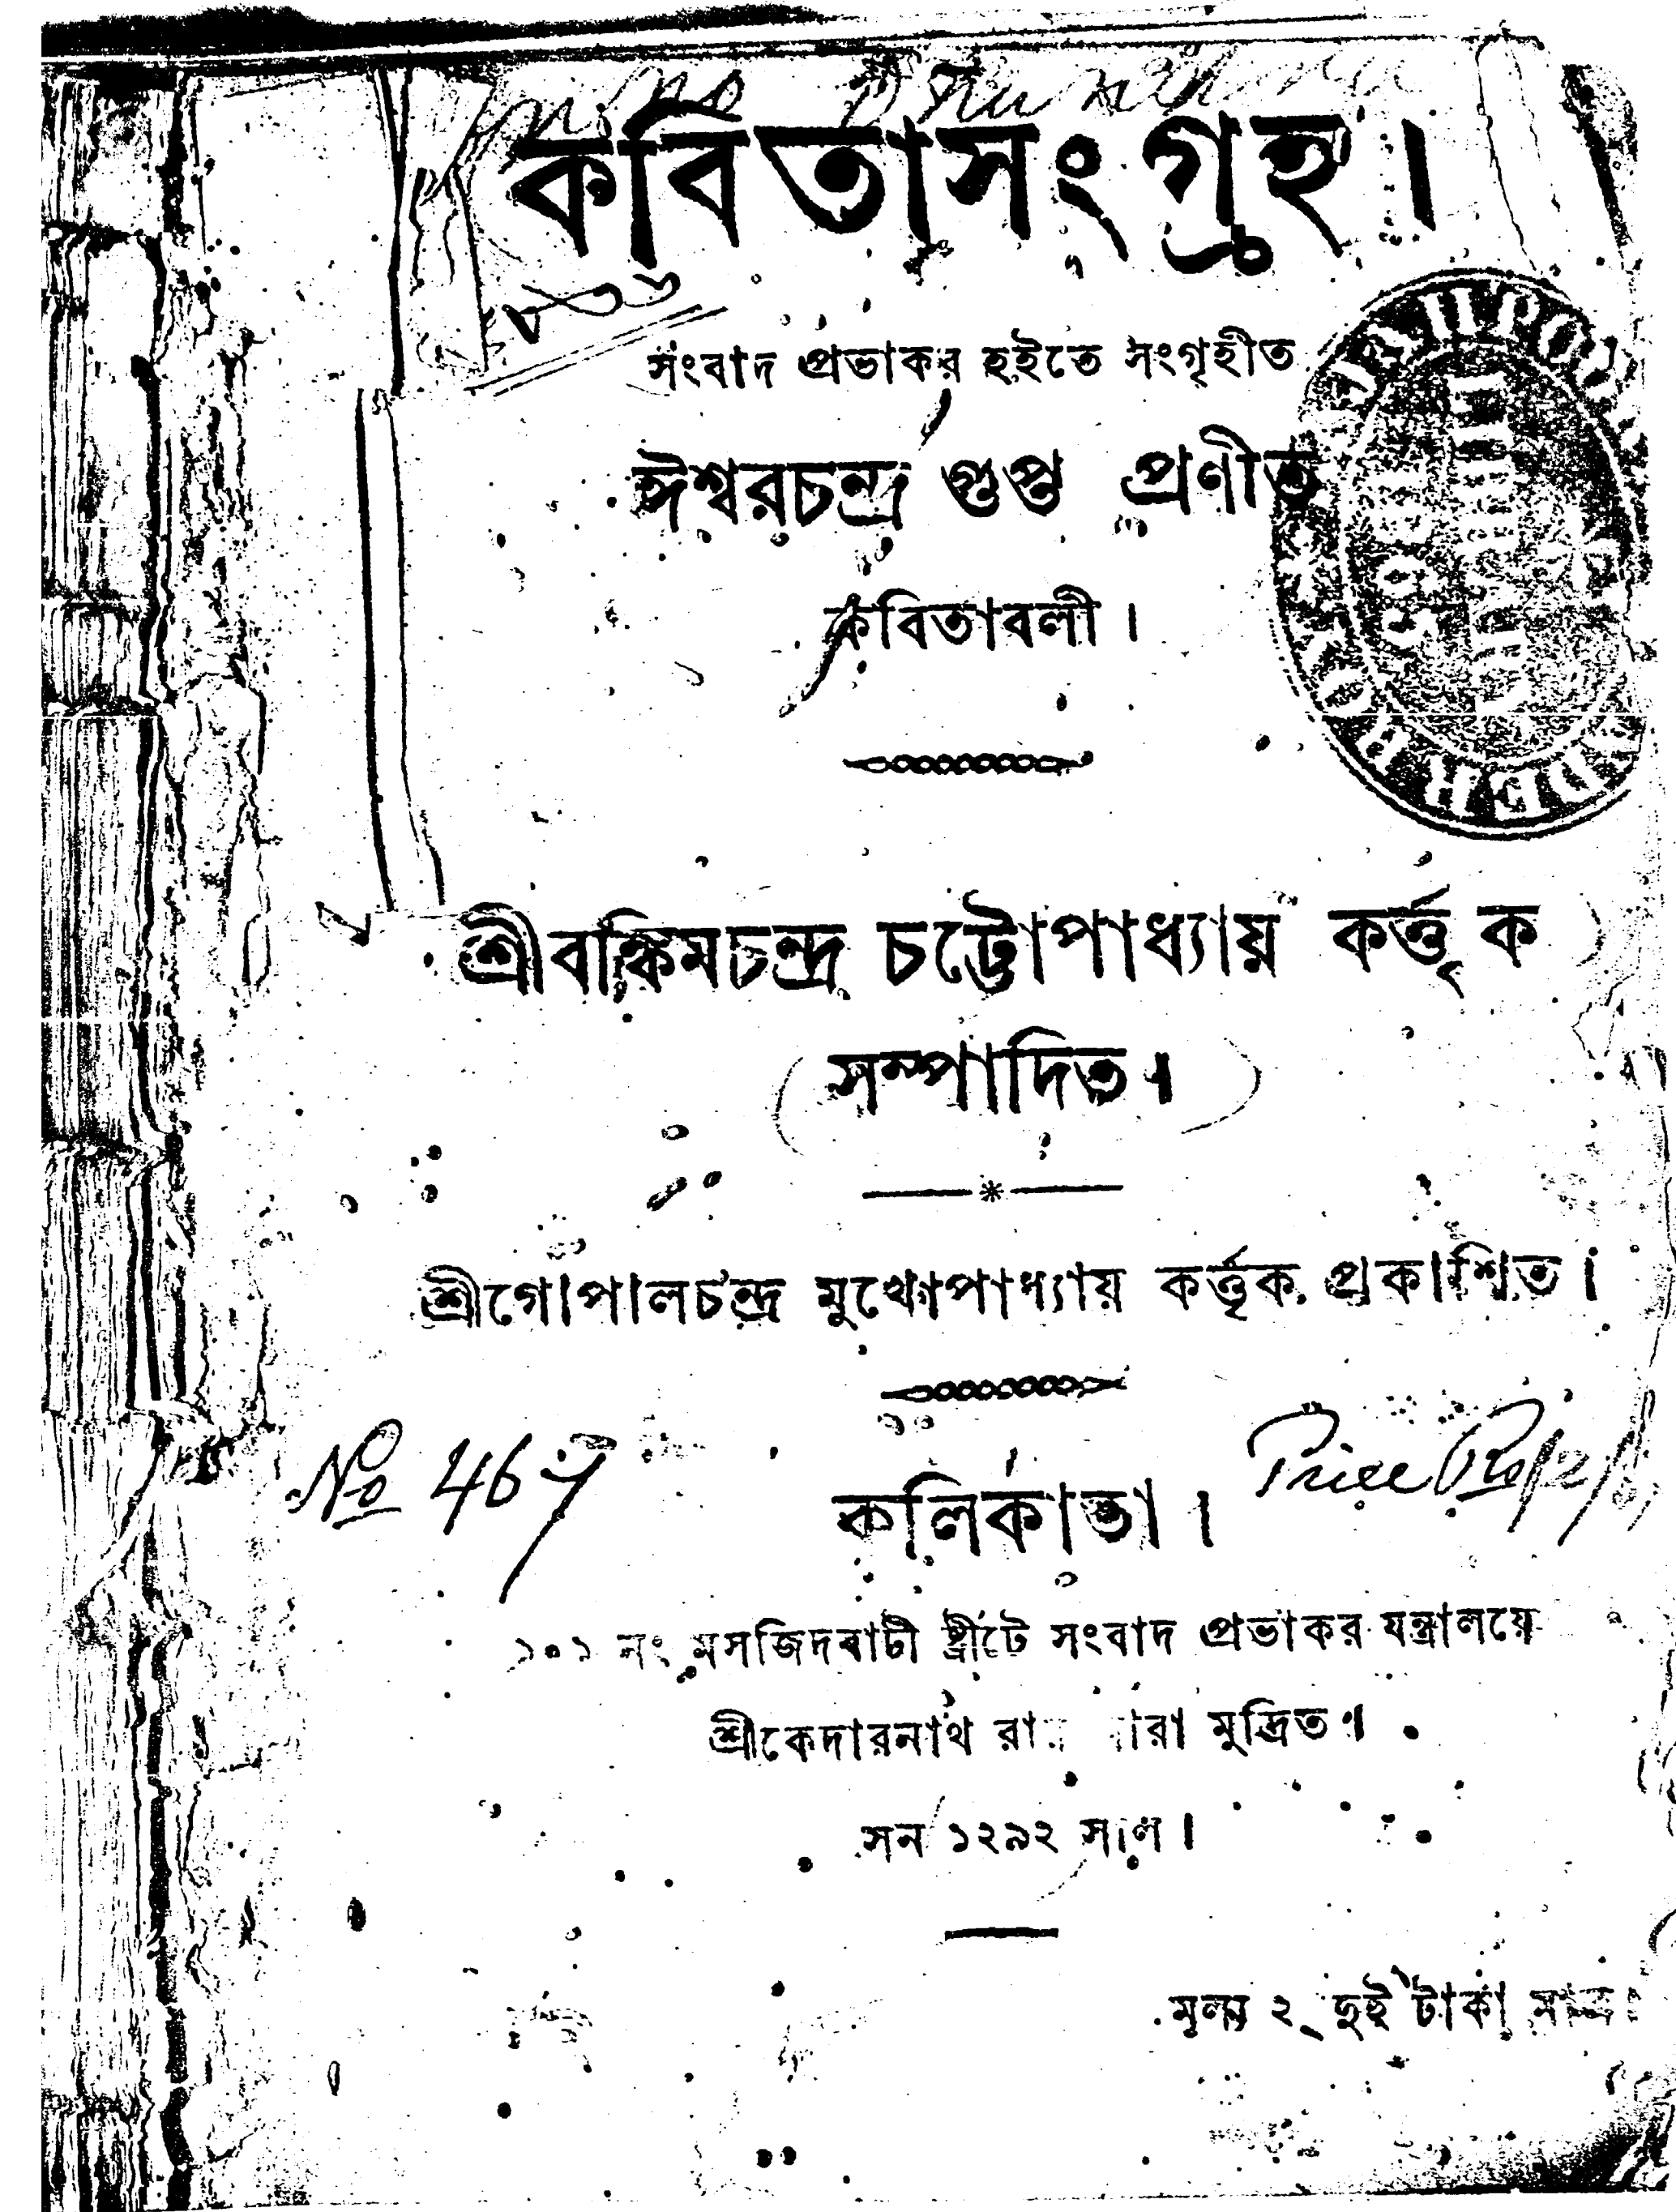 কবিতাসংগ্রহ।
সংবাদ প্রভাকর হইতে সংগৃহীত
ঈশ্বরচন্দ্র গুপ্ত প্রণীত
কবিতাবলী।
শ্রীবঙ্কিমচন্দ্র চট্টোপাধ্যায় কর্ত্তৃক
সম্পাদিত।
শ্রীগোপালচন্দ্র মুখোপাধ্যায় কর্ত্তৃক প্রকাশিত।
No 467
Price Rs/2/
কলিকাতা।
১০১ নং মসজিদবাটী ষ্ট্রীটে সংবাদ প্রভাকর যন্ত্রালয়ে
শ্রীকেদারনাথ মুদ্রিত।
সন ১২৯২ সাল।
মূল্য ২ দুই টাকা মাত্র।